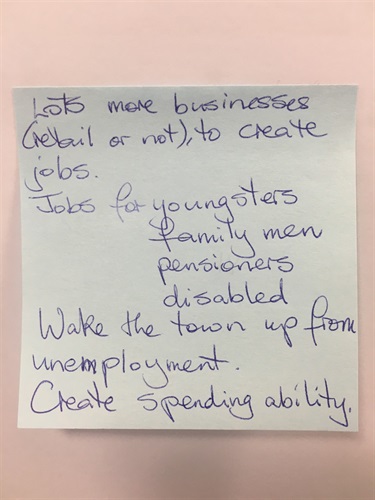 Lots more businesses
(retail or not), to create
jobs.
Jobs for youngsters
family men
pensioners
disabled
Wake the town up from
unemployment.
Create spending ability.